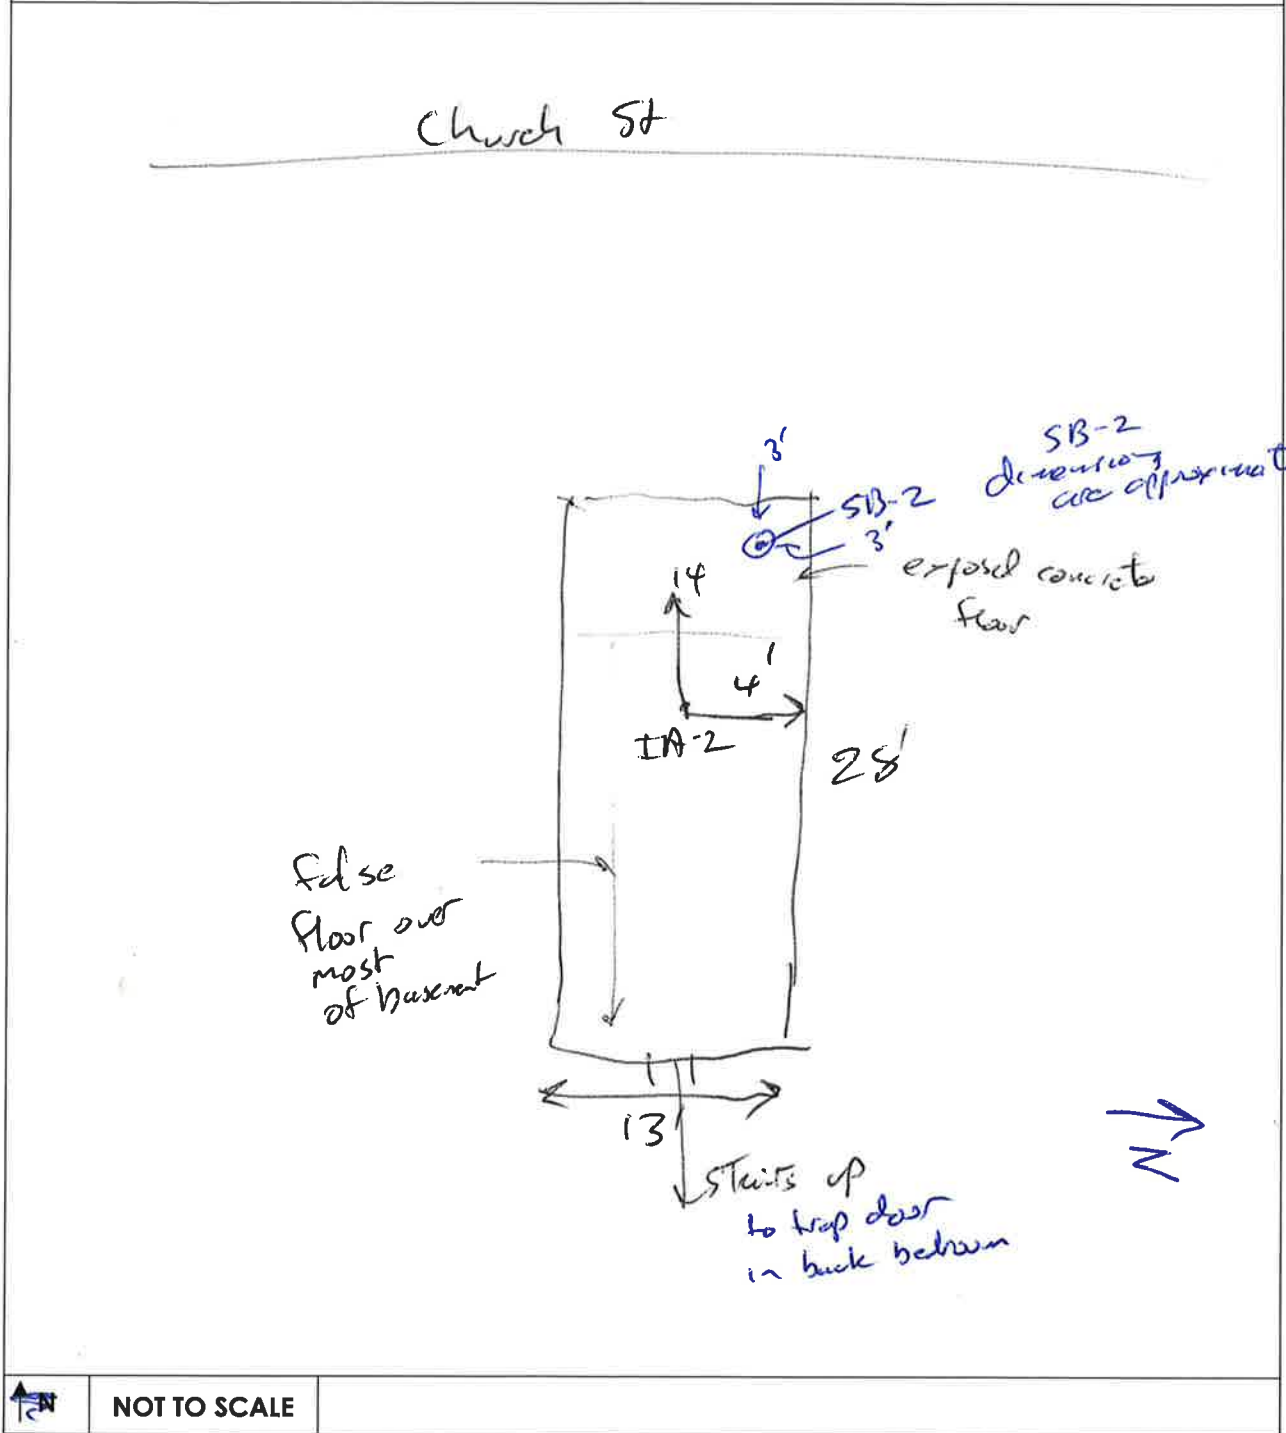 Church St
3'
SB-2
dimensions
are approximate
SB-2
3'
exposed concrete
floor
14
4'
IA-2
28'
false
floor over
most
of basement
13'
Stairs up
to trap door
in back bedroom
N
N
NOT TO SCALE